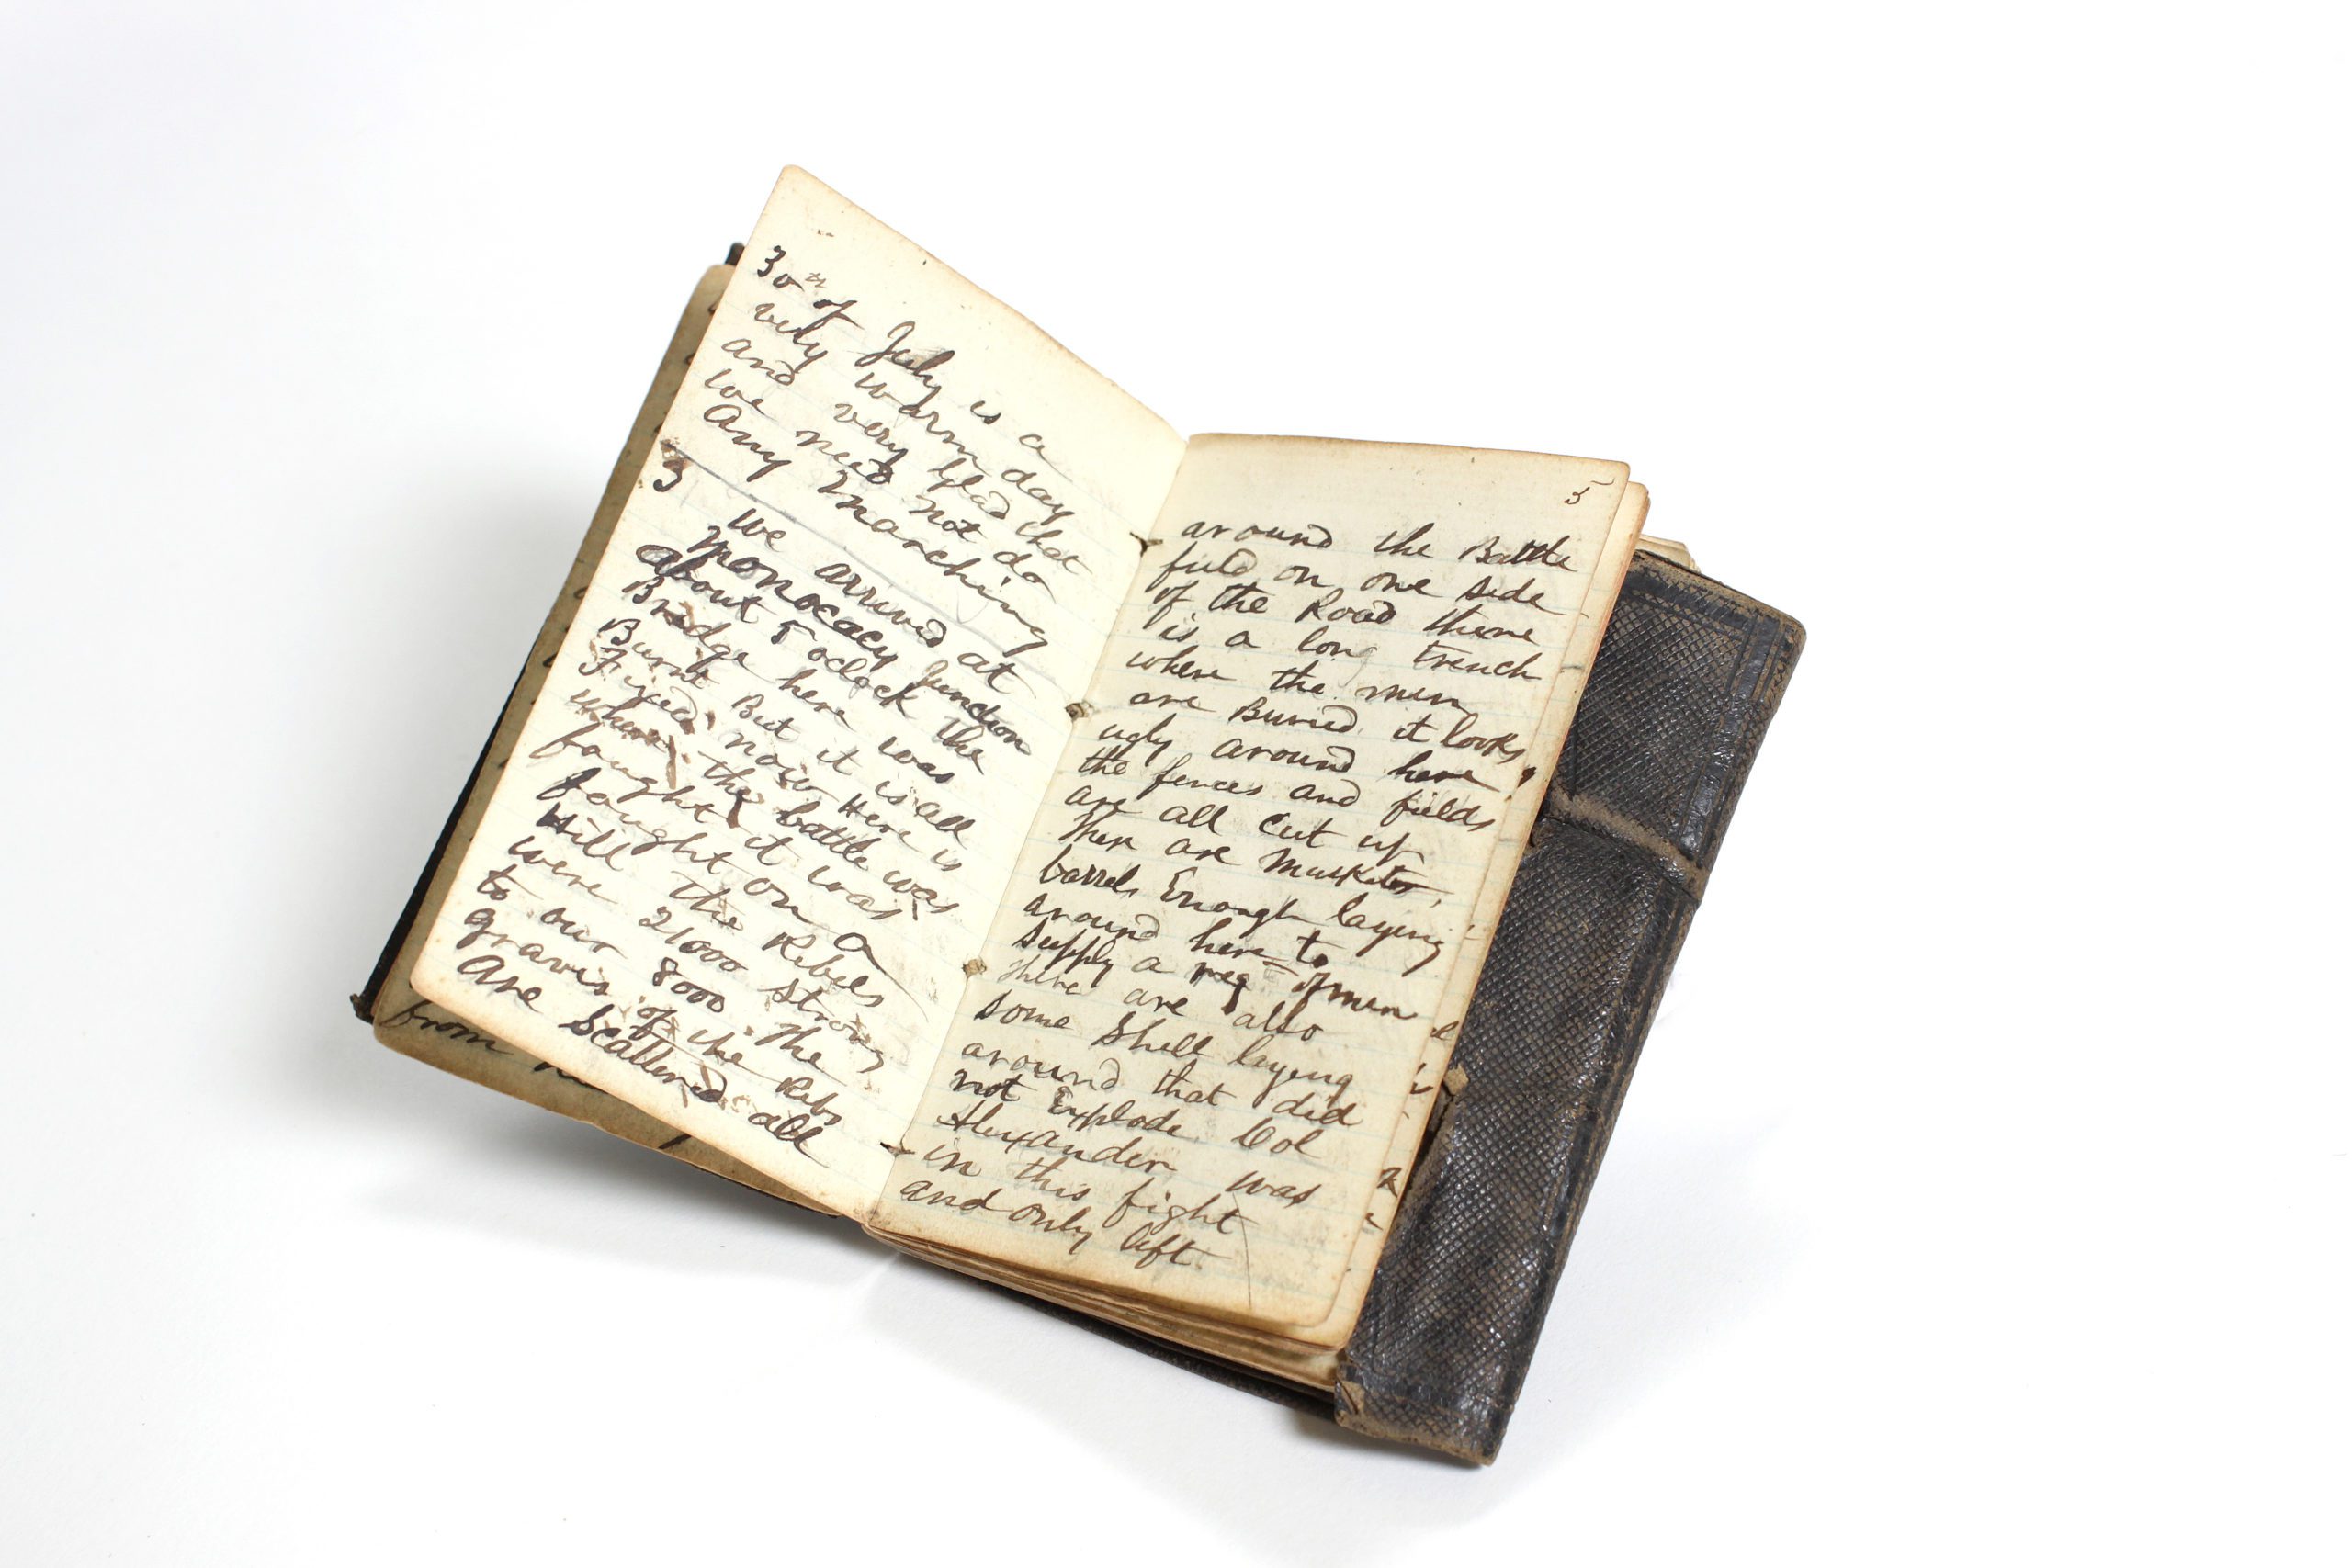 30th of July is a
very warm day
and very Glad that
we need not do
Any Marching
3
we arrived at
Monocacy Junction
about 5 oclock the
Bridge here was
Burnt But it is all
Fixed now Here is
where the battle was
fought it was
fought on a
Hill the Rebels
were 21000 strong
to our 8000 The
graves of the Rebs
Are Scattered all
from
5
around the Battle
field on one side
of the Road there
is a long trench
where the men
are Buried it looks
ugly around here,
the fences and fields
are all cut up
ther are Musket
barrels Enough laying
around here to
supply a reg of men
there are also
some shell laying
around that did
not Explode Col
Alexander was
in this fight
and only left